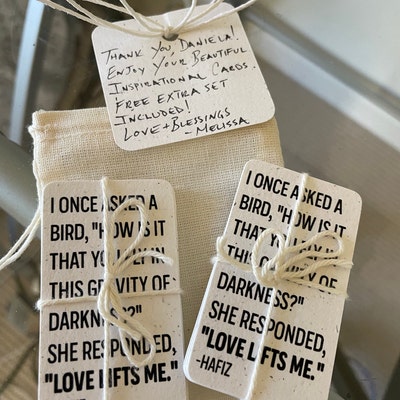 Thank you, Daniela!
Enjoy Your Beautiful
Inspirational Cards.
Free extra set
Included!
Love + Blessings
- Melissa
I ONCE ASKED A
BIRD, "HOW IS IT
THAT YOU FLY IN
THIS GRAVITY OF
DARKNESS?"
SHE RESPONDED,
"LOVE LIFTS ME."
I ONCE ASKED A
BIRD, "HOW IS IT
THAT YOU FLY IN
THIS GRAVITY OF
DARKNESS?"
SHE RESPONDED,
"LOVE LIFTS ME."
-HAFIZ